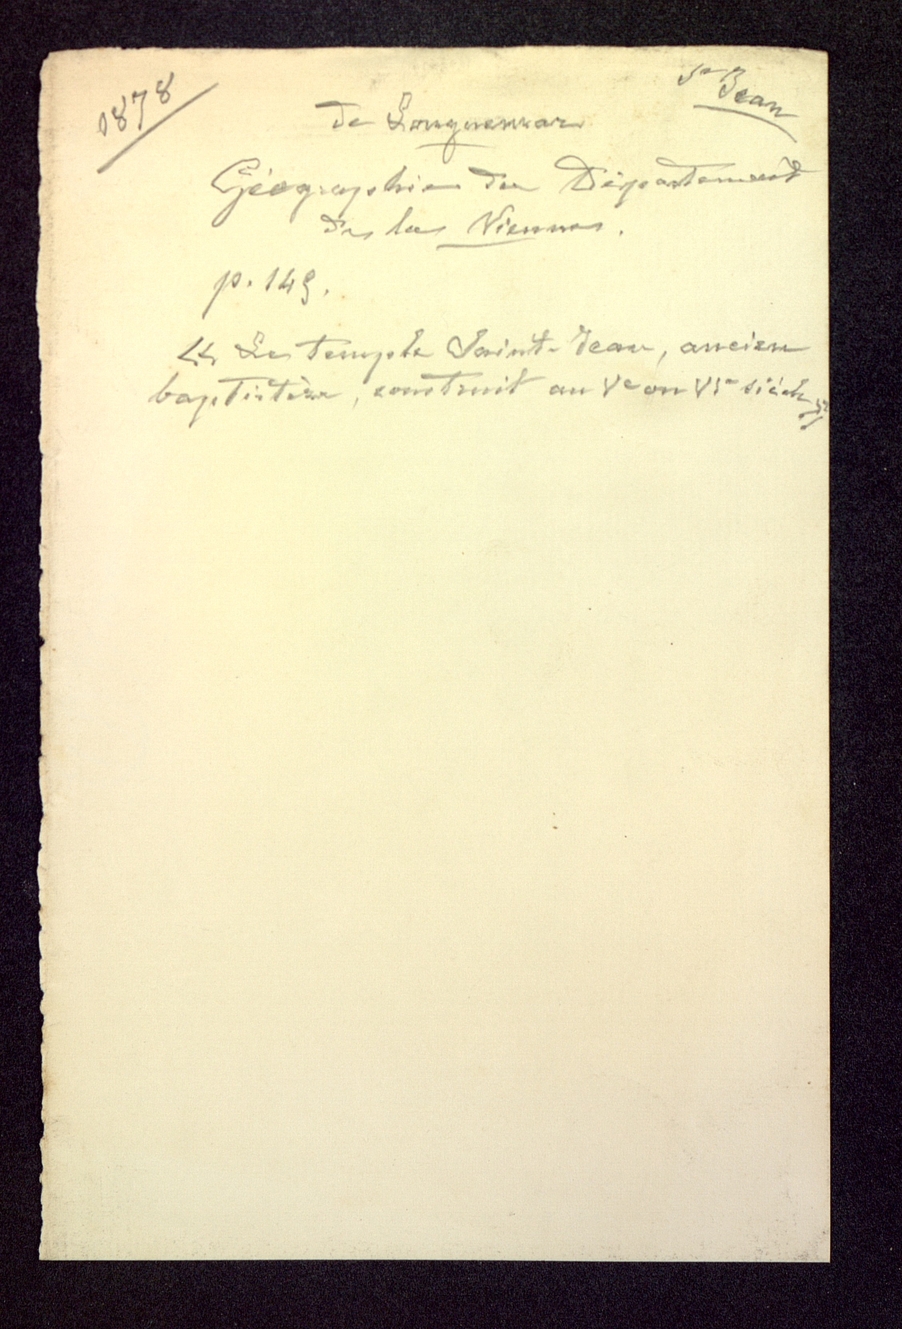 1878
St Jean
de Longuemar
Géographie du Département
de la Vienne.
p. 149.
« Le temple Saint-Jean, ancien
baptistère, construit au Ve ou VIe siècle »